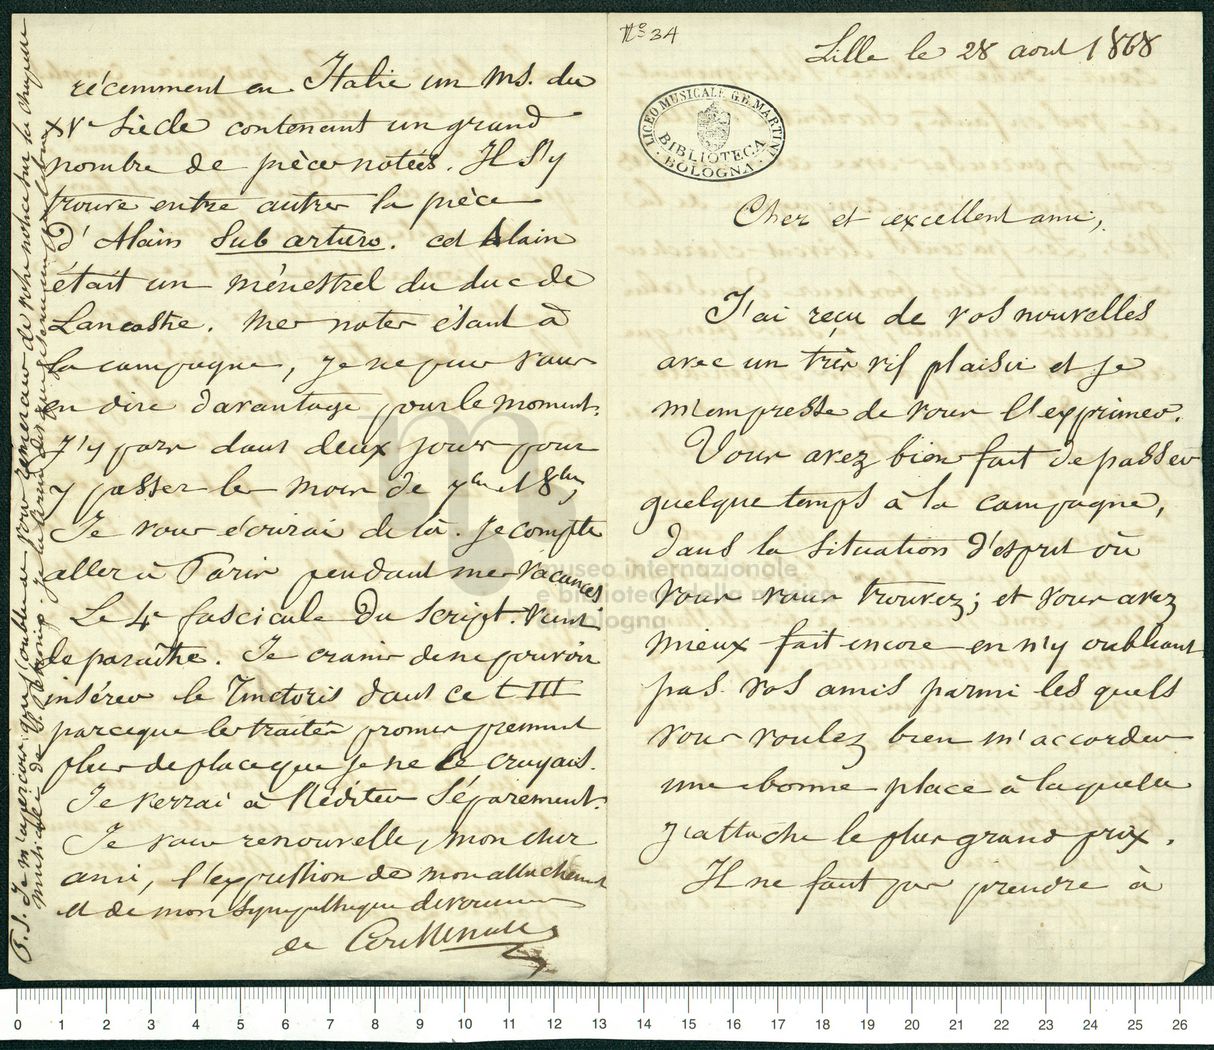 N° 34
Lille le 28 aout 1868
LICEO MUSICALE G.B. MARTINI
BIBLIOTECA
BOLOGNA
Cher et excellent ami,
J'ai reçu de vos nouvelles
avec un très vif plaisir et je
m'empresse de vous l'exprimer.
Vous avez bien fait de passer
quelque temps à la campagne,
dans la situation d'esprit où
vous vous trouvez; et vous avez
mieux fait encore en n'y oubliant
pas vos amis parmi les quels
vous voulez bien m'accorder
une bonne place à laquelle
j'attache le plus grand prix.
Il ne faut pas prendre à
récemment en Italie un ms. du
XVe siècle contenant un grand
nombre de pièces notées. Il s'y
trouve entre autres la pièce
d'Alain Sub arturo. cet Alain
était un ménestrel du duc de
Lancastre. Mes notes étant à
la campagne, je ne puis vous
en dire davantage pour le moment.
J'y pars dans deux jours pour
y passer les mois de 7bre et 8bre
Je vous écrirai de là. Je compte
aller à Paris pendant mes vacances
Le 4e fascicule du Script. vient
de paraître. Je crains de ne pouvoir
insérer le Tinctoris dans ce t III
parceque les traités promis prennent
plus de place que je ne le croyais.
Je verrai à l'éditer séparément.
Je vous renouvelle, mon cher
ami, l'expression de mon attachement
et de mon sympathique dévouement
de Coussemaker
P.S. Je m'aperçois que j'oubliais de vous remercier de votre notice sur la chapelle
musicale de S. Petrone. Je la lirai
museo internazionale
e biblioteca della musica
di bologna
0 1 2 3 4 5 6 7 8 9 10 11 12 13 14 15 16 17 18 19 20 21 22 23 24 25 26